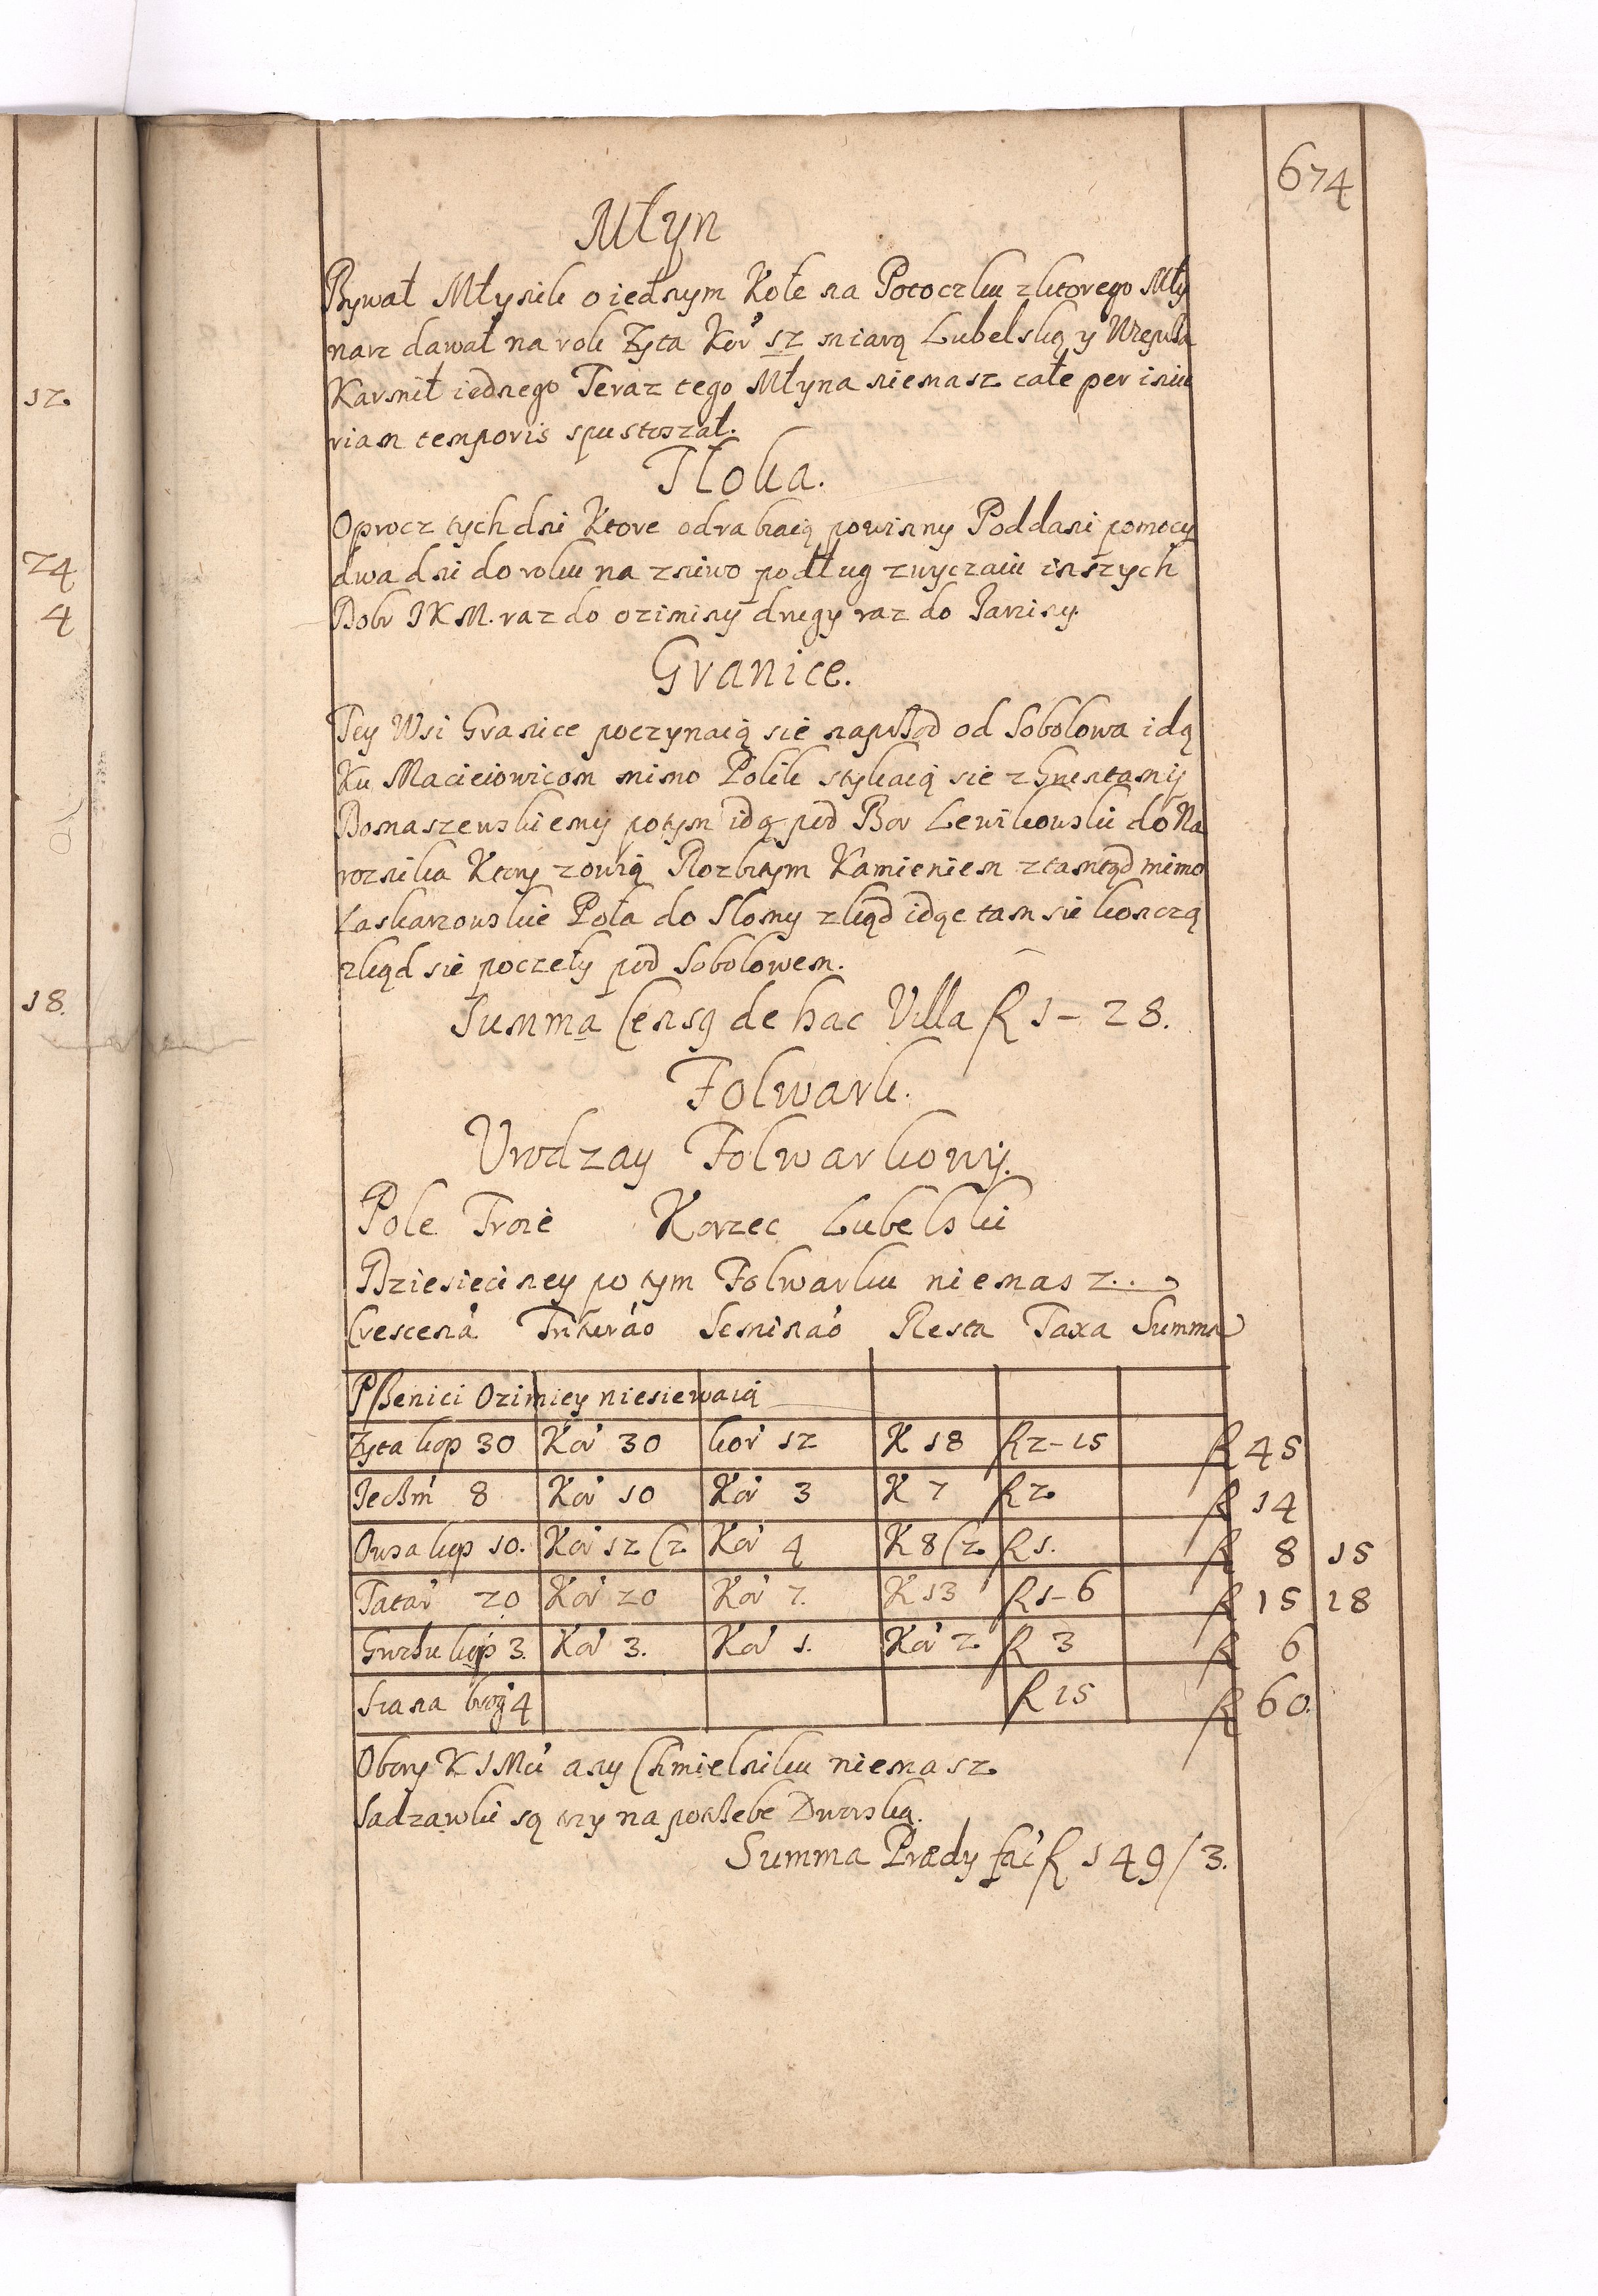 674
Młyn
Bywał Młynik o iednym Kole na Potoczku z ktorego Mły
narz dawał na rok Zyta Kor' 12 miarą Lubelską y Wieprza
Karmił iednego Teraz tego Młyna niemasz całe per iniu
riam temporis spustoszał.
Tłoka.
Oprocz tych dni Ktore odrabiaią powinny Poddani pomocy
dwa dni do roku na zniwo podług zwyczaiu inszych
Dobr JKM. raz do oziminy drugy raz do Jarziny.
Granice.
Tey Wsi Granice poczynaią sie naprzod od Sobolowa idą
Ku Macieiowicom mimo Polik stykaią sie z Gruntamy
Domaszewskiemy potym idą pod Bor Lewikowski do Na
roznika Ktory zowią Rozbitym Kamieniem z tamtąd mimo
Laskarzowskie Pola do Slomy zkąd idąc tam sie konczą
zkąd sie poczeły pod Sobolowem.
Summa Censq de hac Villa f 1 - 28.
Folwark.
Urodzay Folwarkowy.
Pole Troie Korzec Lubelski
Dziesieciney po tym Folwarku niemasz..
Crescená Triturao Seminao Resta Taxa Summa
Pszenici Ozimiey niesiewaią
Zyta kop 30 Kor' 30 kor' 12 K 18 f 2-15 f 45
Jeczm' 8 Kor' 10 Kor' 3 K 7 f 2 f 14
Owsa kop 10. Kor' 12 Cz Kor' 4 K 8 Cz f 1. f 8 15
Tatar' 20 Kor' 20 Kor' 7. K 13 f 1-6 f 15 18
Grochu kop 3. Kor' 3. Kor' 1. Kor' 2 f 3 f 6
Siana brog' 4 f 15 f 60.
Obory K J Mci any Chmielniku niemasz
Sadzawki są trzy na potrzebe Dworską.
Summa Prædy fac' f 149/3.
12.
24
4
18.